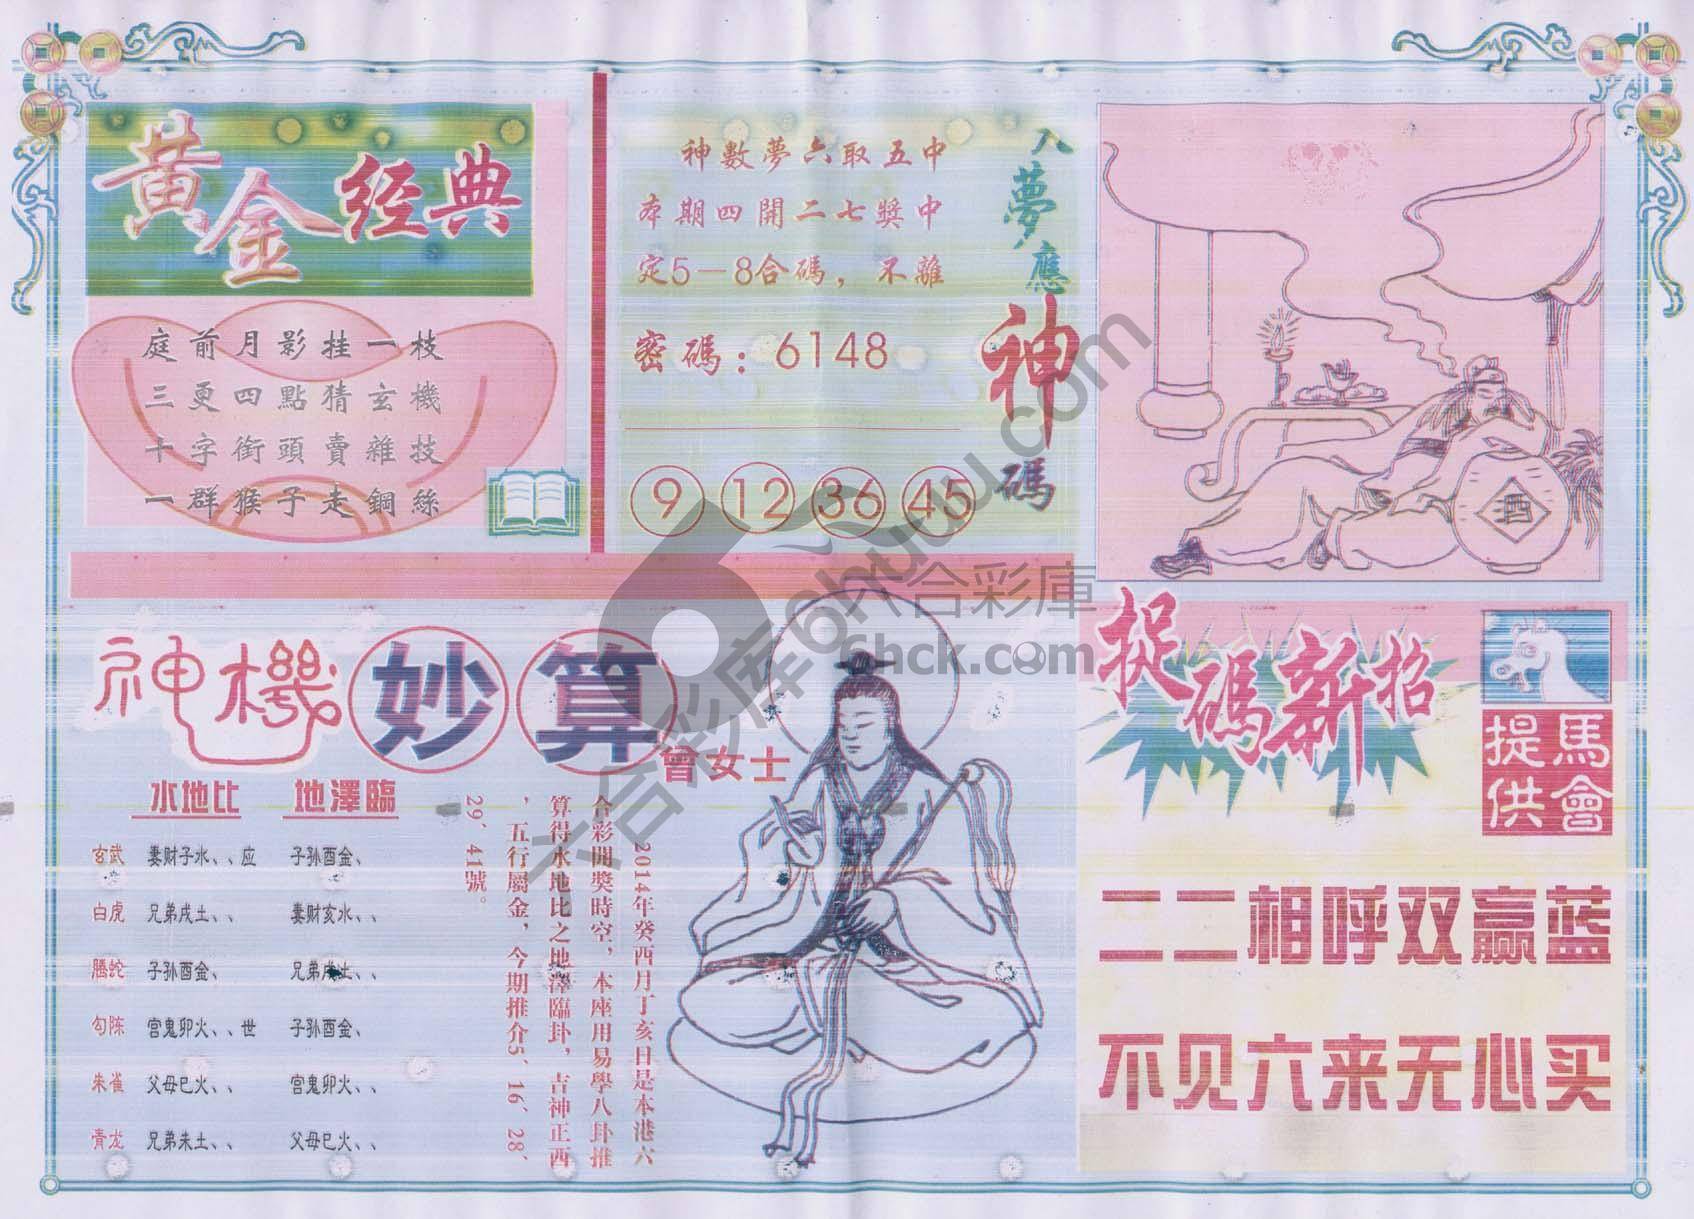 黄金经典
庭前月影挂一枝
三更四點猜玄機
十字街頭賣雜技
一群猴子走鋼絲
入夢應神碼
神數夢六取五中
本期四開二七獎中
定5—8合碼，不離
密碼：6148
9 12 36 45
酒
神機妙算
曾女士
水地比 地澤臨
玄武 妻财子水、、应 子孙酉金、
白虎 兄弟戌土、、 妻财亥水、、
螣蛇 子孙酉金、 兄弟戌土、、
勾陈 官鬼卯火、、世 子孙酉金、
朱雀 父母巳火、、 官鬼卯火、、
青龙 兄弟朱土、、 父母巳火、、
2014年癸酉月丁亥日是本港六
合彩開獎時空，本座用易學八卦推
算得水地比之地澤臨卦，吉神正西
，五行屬金，今期推介5、16、28、
29、41號。
捉碼新招
馬會
提供
二二相呼双赢蓝
不见六来无心买
六合彩库 6huwu.com
六合彩庫
6hck.com